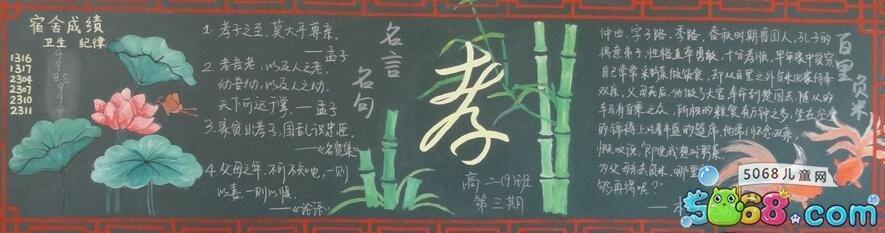 宿舍成绩
卫生 纪律
1316
1317
2304
2307
2310
2311
1. 孝子之至,莫大乎尊亲。
——孟子
2. 老吾老,以及人之老,
幼吾幼,以及人之幼,
天下可运于掌。——孟子
3. 家贫出孝子,国乱识忠臣
——《名贤集》
4. 父母之年,不可不知也,一则
以喜,一则以惧。
——《论语》
名言
名句
孝
高二(9)班
第三期
百里负米
仲由,字子路、季路,春秋时期鲁国人,孔子的
得意弟子,性格直率勇敢,十分孝顺。早年家中贫穷,
自己常常采野菜做饭食,却从百里之外负米回家侍奉
双亲。父母死后,他做了大官,奉命到楚国去,随从的
车马有百乘之众,所积的粮食有万钟之多。坐在
的锦褥上,吃着丰盛的筵席,他常常怀念双亲,
慨叹说:“即使我想吃野菜,
为父母亲去负米,哪里
够再得呢?”
5068儿童网
5068.com